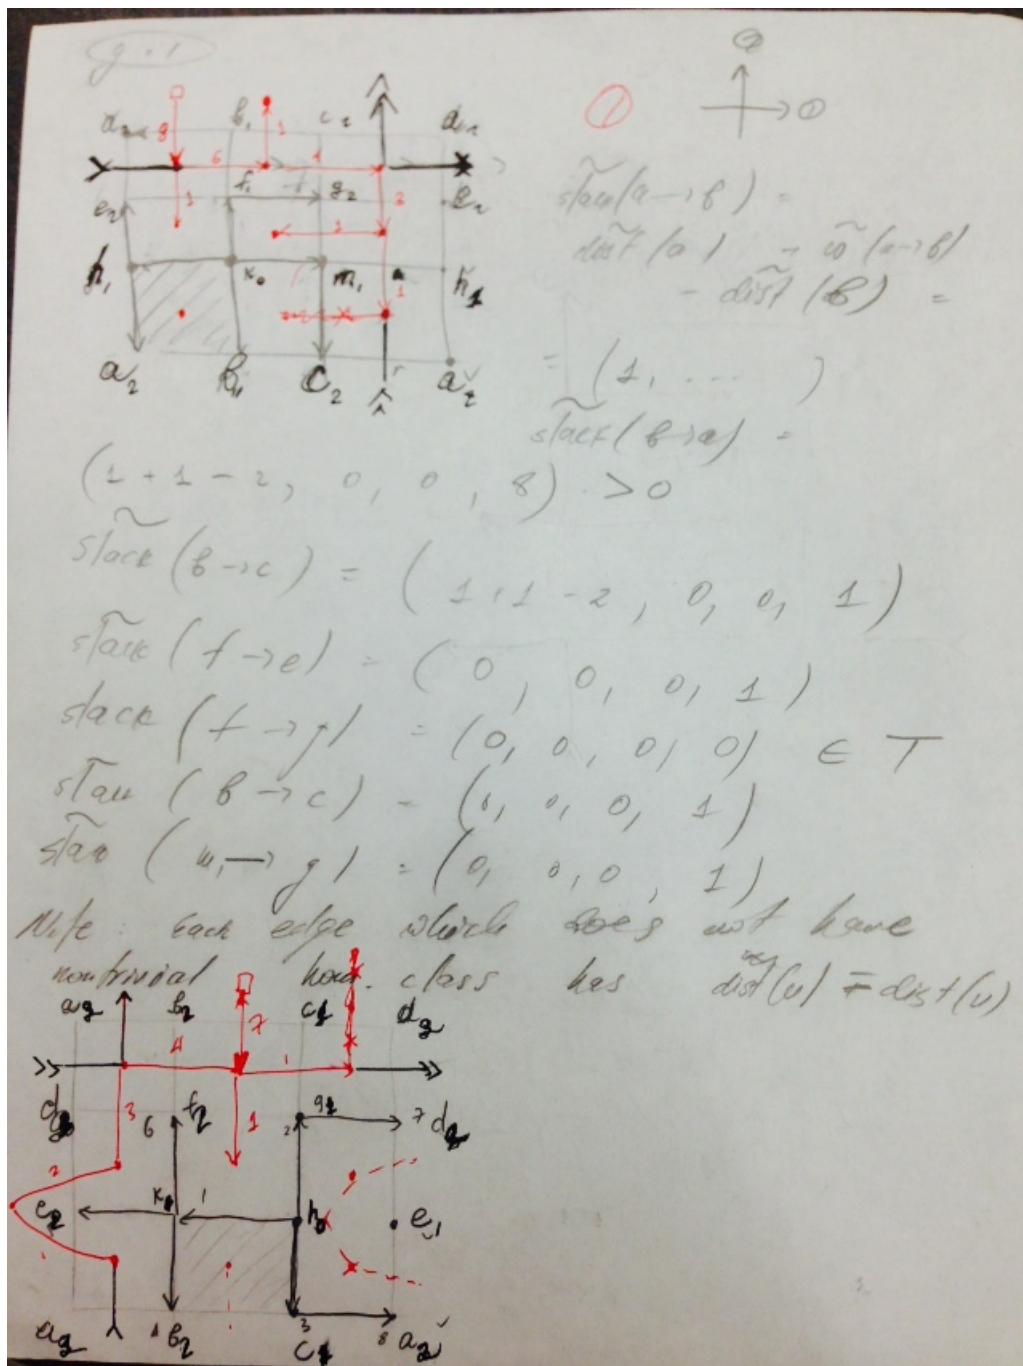 g = 1
d₂ b₁ c₂ d₂
9 6 1 4
e₂ f₁ g₂ e₂
1 3
2
h₁ k₀ m₁ h₁
1
a₂ b₁ c₂ a₂
①
slack(a→b) =
dist(a) + w(a→b)
- dist(b) =
= (1, ... )
slack(b→a) =
(1+1-2, 0, 0, 8) > 0
slack(b→c) = (1+1-2, 0, 0, 1)
slack(f→e) = (0, 0, 0, 1)
slack(f→g) = (0, 0, 0, 0) ∈ T
slack(b→c) = (0, 0, 0, 1)
slack(m₁→g) = (0, 0, 0, 1)
Note: each edge which does not have
nontrivial hom. class has dist(u) = dist(v)
a₂ b₂ c₁ d₂
7
4 1
d₂ 3 6 f₂ 1 2 g₁ 7 d₂
2
e₂ k₁ 1 h₀ e₁
a₂ b₂ 3 c₁ 8 a₂